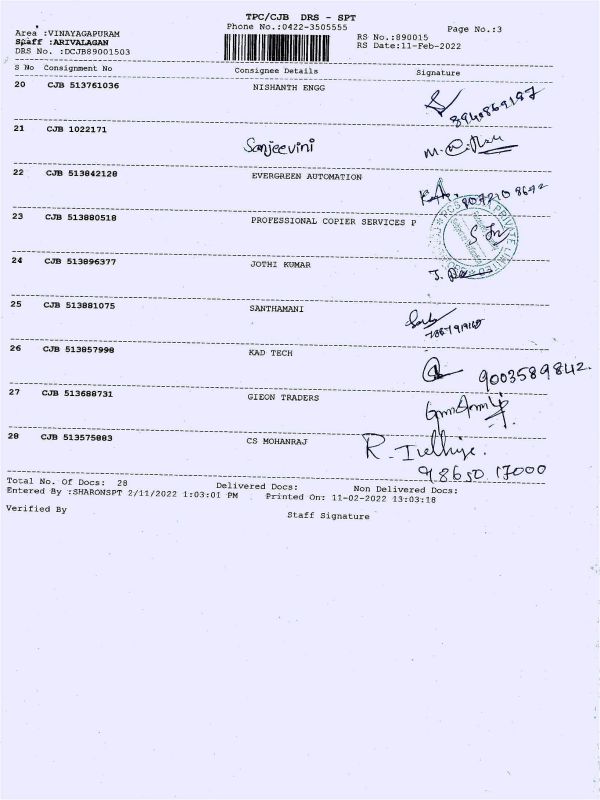 TPC/CJB DRS - SPT
Area :VINAYAGAPURAM Phone No.:0422-3505555 Page No.:3
Staff :ARIVALAGAN RS No.:890015
DRS No. :DCJB89001503 RS Date:11-Feb-2022
S No Consignment No Consignee Details Signature
20 CJB 513761036 NISHANTH ENGG
21 CJB 1022171 Sanjeevini
22 CJB 513842128 EVERGREEN AUTOMATION
23 CJB 513880518 PROFESSIONAL COPIER SERVICES P
PRIVATE LIMITED
24 CJB 513896377 JOTHI KUMAR
25 CJB 513881075 SANTHAMANI
26 CJB 513857998 KAD TECH
9003589842.
27 CJB 513688731 GIEON TRADERS
28 CJB 513575883 CS MOHANRAJ
98650 17000
Total No. Of Docs: 28 Delivered Docs: Non Delivered Docs:
Entered By :SHARONSPT 2/11/2022 1:03:01 PM Printed On: 11-02-2022 13:03:18
Verified By Staff Signature